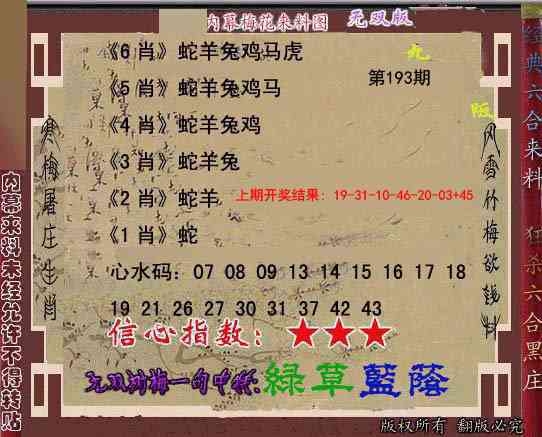 内幕梅花来料图 无双版
《6 肖》蛇羊兔鸡马虎
九
第193期
《5 肖》蛇羊兔鸡马
版
《4 肖》蛇羊兔鸡
《3 肖》蛇羊兔
《2 肖》蛇羊
上期开奖结果：19-31-10-46-20-03+45
《1 肖》蛇
心水码：07 08 09 13 14 15 16 17 18
19 21 26 27 30 31 37 42 43
信心指数：★★★
綠草藍蔭
寒梅屠庄生肖
风雪竹梅欲钱料
内幕来料未经允许不得转贴
经典六合来料 狂杀六合黑庄
版权所有 翻版必究